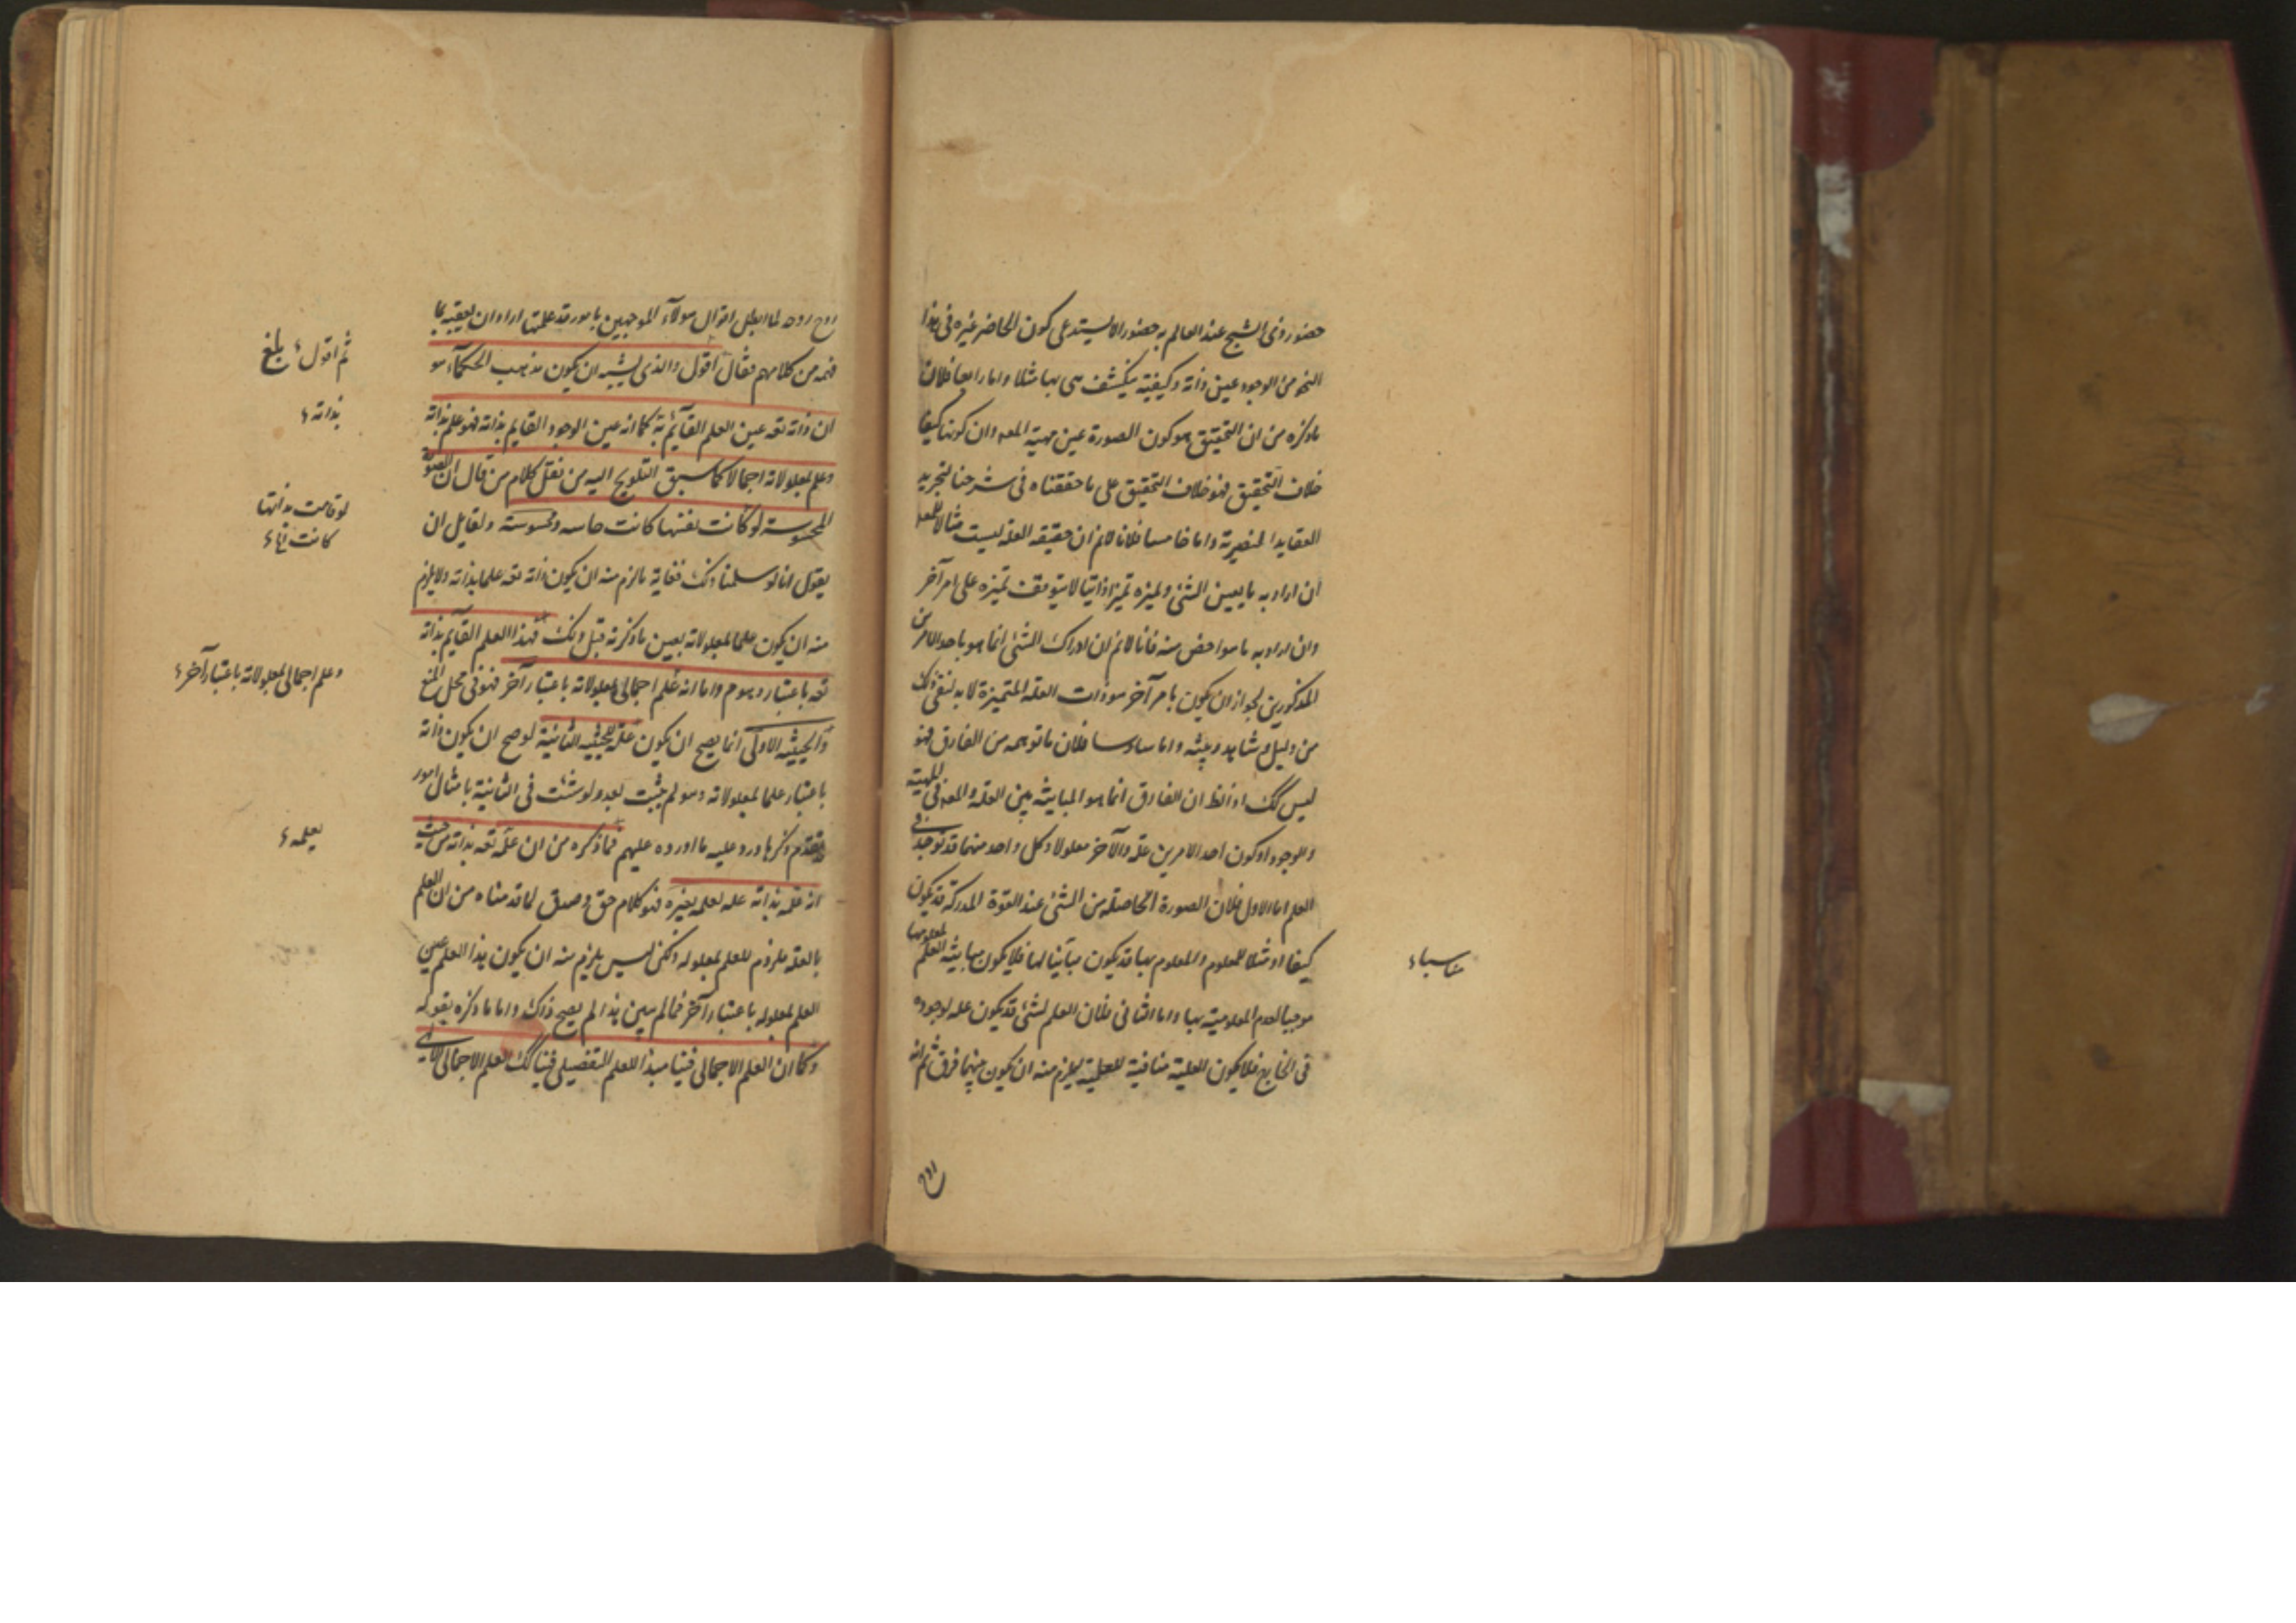 حضور ذى الشبح عند العالم به حضورا لا يستدعى كون الحاضر غيره فى هذا
النحو من الوجود عين ذاته وكيفية ينكشف هى بها مثلا واما رابعا فلان
ماذكره من ان التحقيق هو كون الصورة عين مهية المعه وان كونها كيفا
خلاف التحقيق فهو خلاف التحقيق على ما حققناه فى شرحنا لتجريد
العقايد النصيرية واما خامسا فلانا لانم ان حقيقه العله ليست مثالا للمعه
ان اراد به ما يعين الشئ ويميزه تميزا ذاتيا لا يتوقف تميزه على امر آخر
وان اراد به ما هو اخص منه فانا لانم ان ادراك الشئ انما هو باحد الامرين
المذكورين لجواز ان يكون بامر آخر هو ذات العله المتميزة لا بد لنفى ذلك
من دليل وشاهد وبينه واما سادسا فلان ما توهمه من الفارق فهو
ليس كك اذ الظ ان الفارق انما هو المباينه بين العله والمعه فى المهية
والوجود او كون احد الامرين علة والآخر معلولا وكل واحد منهما قد توجد فى
العلم اما الاول فلان الصورة الحاصله من الشئ عند القوة المدركة قد يكون
كيفا او مثلا للمعلوم والمعلوم بها قد يكون مباينا لها فلا يكون مباينه العلم لمعلومها
موجبا لعدم المعلومية بها واما الثانى فلان العلم لشئ قد يكون عله لوجوده
فى الخارج فلا يكون العلية منافية للعلمية يلزم منه ان يكون بينهما فرق ثم انه
مناسباء
روح روحه لما ابطل اقوال هولاء الموجهين بامور قد علمتها اراد ان يعقبه بما
فهمه من كلامهم فقال اقول والذى يشبه ان يكون مذهب الحكماء هو
ان ذاته تعه عين العلم القائم به كما انه عين الوجود القايم بذاته فهو علم بذاته
وعلم لمعلولاته اجمالا كما سبق التلويح اليه من نقل كلام من قال ان الصورة
المحسوسة لو كانت بنفسها كانت حاسه ومحسوسة ولقايل ان
يقول انا لو سلمنا ذلك فغاية مالزم منه ان يكون ذاته تعه علما بذاته ولا يلزم
منه ان يكون علما لمعلولاته بعين ماذكرته قبل ذلك فهذا العلم القايم بذاته
تعه باعتبار وهو م واما انه علم اجمالى لمعلولاته باعتبار آخر فهو فى محل المنع
والحيثيه الاولى انما يصح ان يكون علة للحيثيه الثانية لو صح ان يكون ذاته
باعتبار علما لمعلولاته وهو لم يثبت بعد ولو شئت فى الثانية بامثال امور
تقدم ذكرها ورد عليه ما اورده عليهم فماذكره من ان علمه تعه بذاته من حيث
انه علمه بذاته عله لعلمه بغيره فهو كلام حق وصدق لما قدمناه من ان العلم
بالعله ملزوم للعلم بمعلوله ولكن ليس يلزم منه ان يكون هذا العلم عين
العلم بمعلوله باعتبار آخر فما لم يبين هذا لم يصح ذلك واما ماذكره بقوله
وكما ان العلم الاجمالى فينا مبدا للعلم التفصيلى فينا كك العلم الاجمالى الالهى
ثم اقول ء بلغ
بذاته ء
لو قامت بذاتها
وعلم اجمالى لمعلولاته باعتبار آخر ء
بعلمه ء